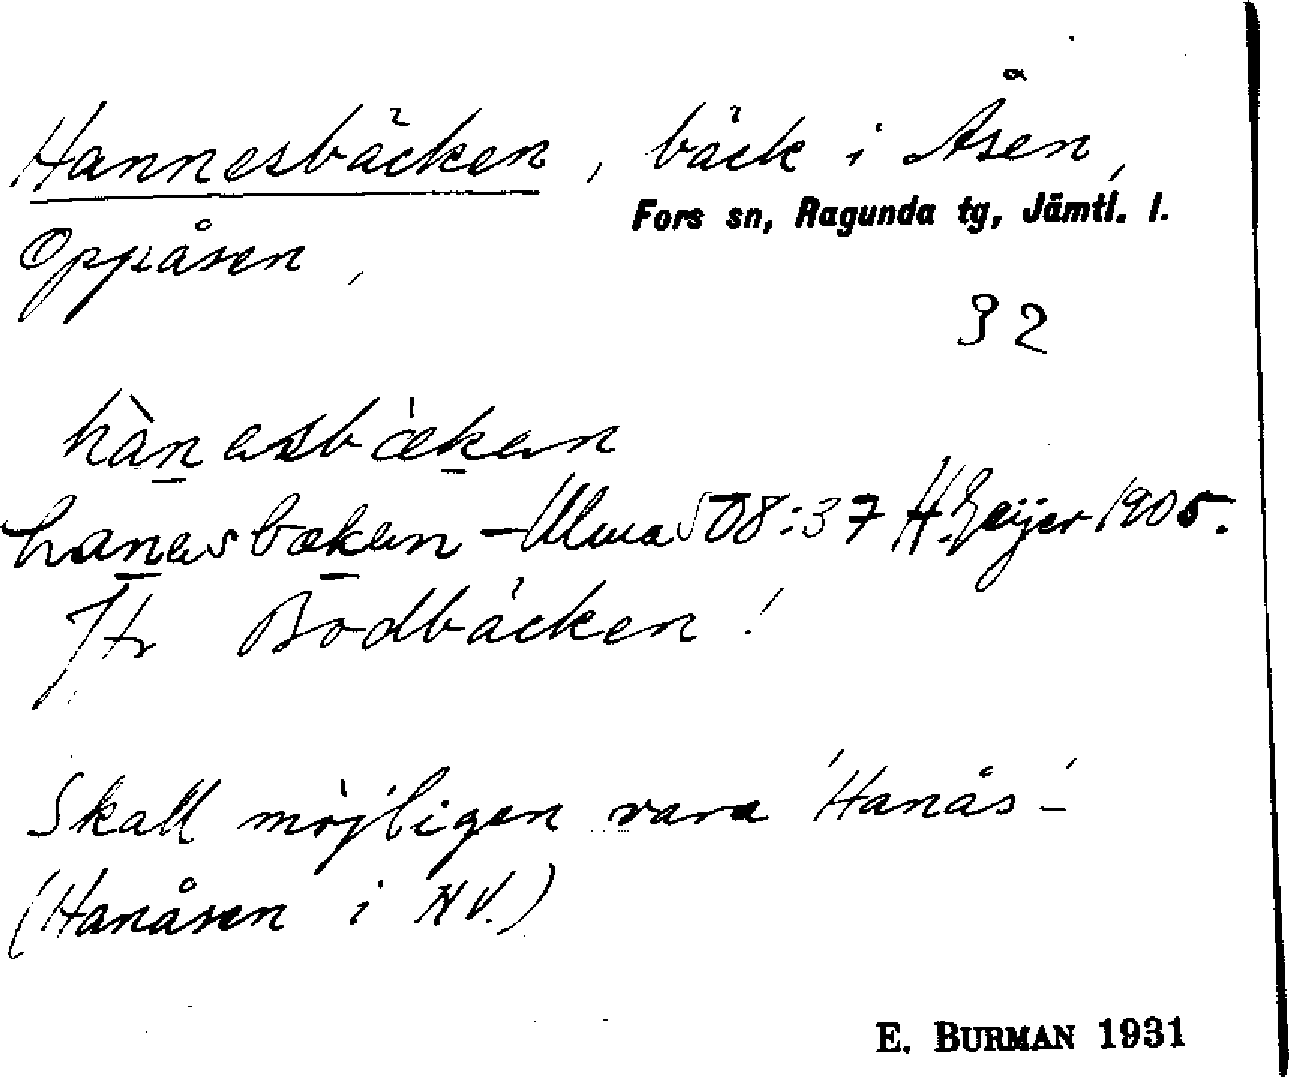 Hannesbäcken, bäck i Åsen,
Fors sn, Ragunda tg, Jämtl. l.
Oppåsen,
32
hànesbækan
hanesbækan - Ulma 508:37 H. Geijer 1905.
Jfr Bodbäcken!
Skall möjligen vara 'Hanås-'
(Hanåsen i NV.)
E. BURMAN 1931